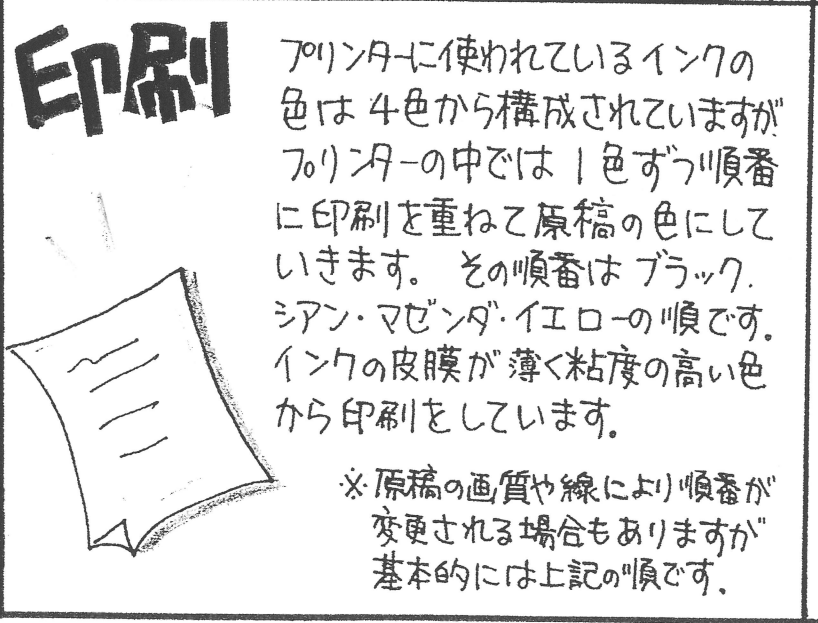 印刷
プリンターに使われているインクの
色は4色から構成されていますが
プリンターの中では1色ずつ順番
に印刷を重ねて原稿の色にして
いきます。その順番はブラック.
シアン・マゼンダ・イエローの順です.
インクの皮膜が薄く粘度の高い色
から印刷をしています。
※原稿の画質や線により順番が
変更される場合もありますが
基本的には上記の順です.